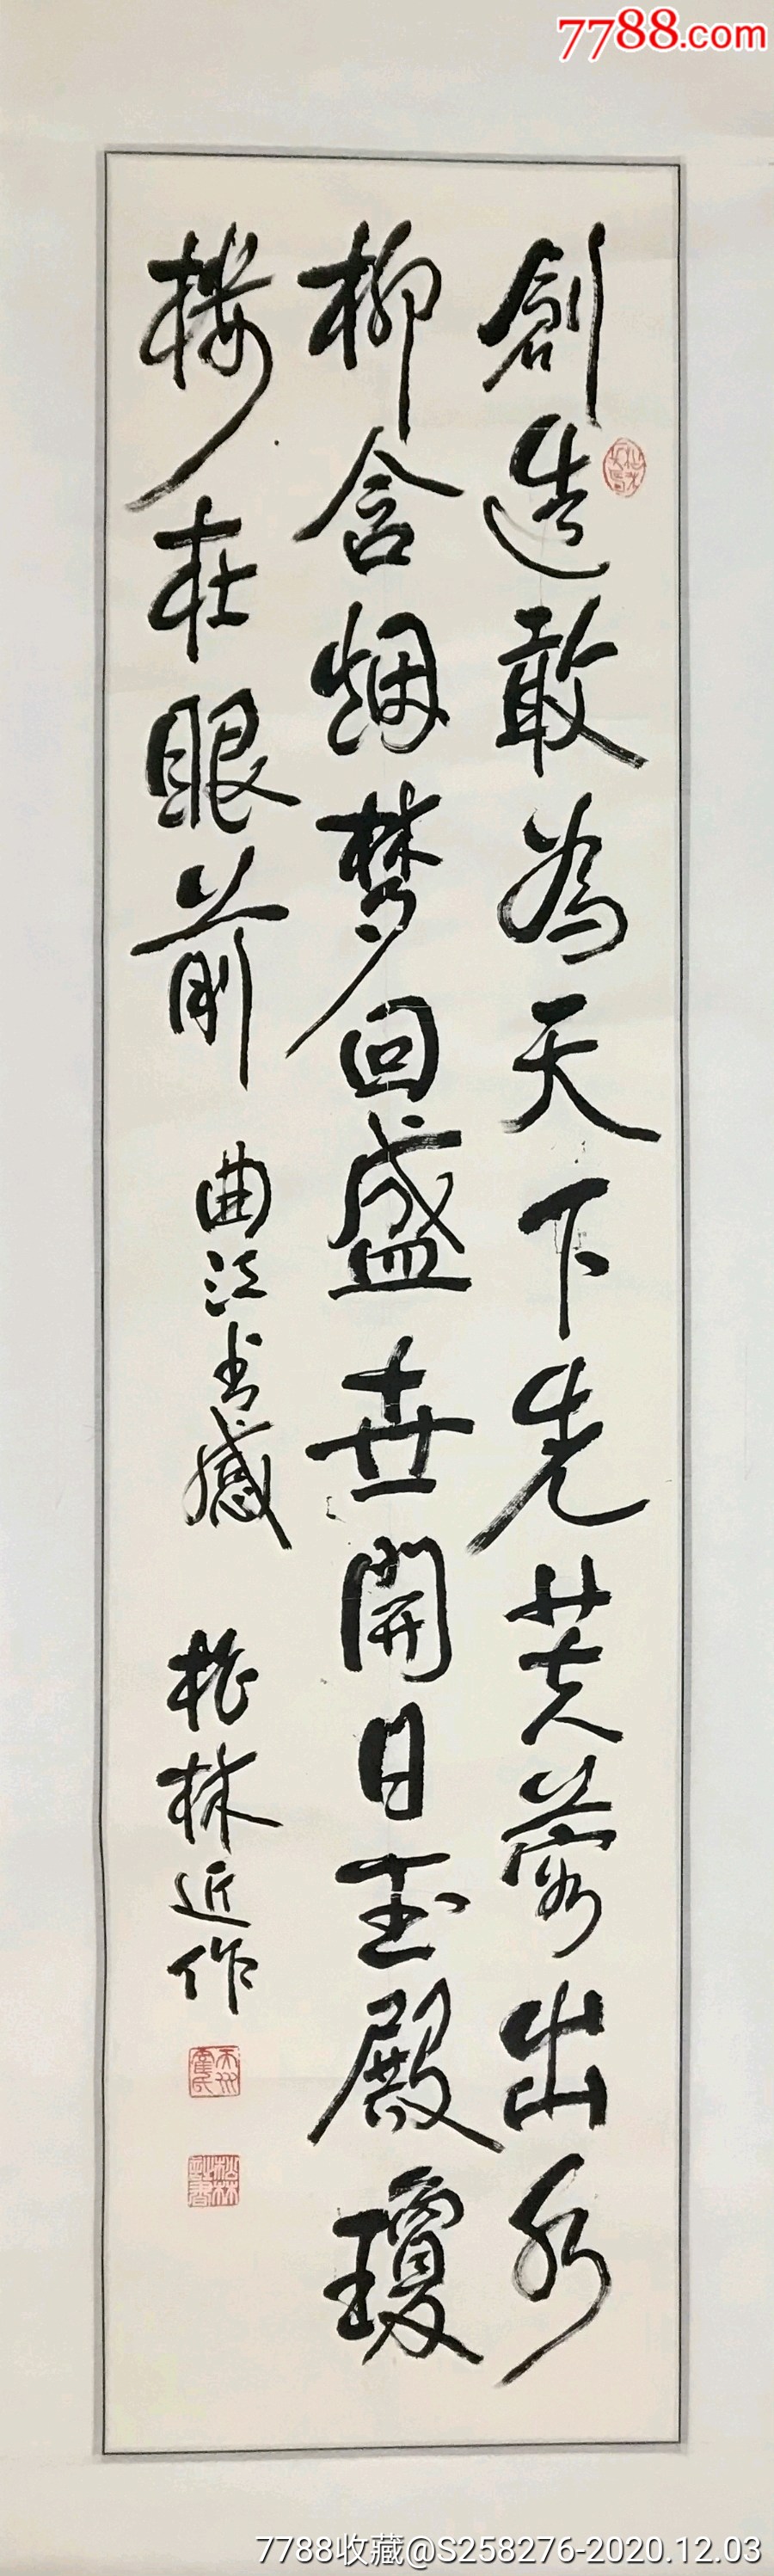 7788.com
創造敢為天下先芙蓉出水
柳含烟梦回盛世開日玉殿瓊
楼在眼前
曲江书感
松林近作
天水霍氏
7788收藏@S258276-2020.12.03